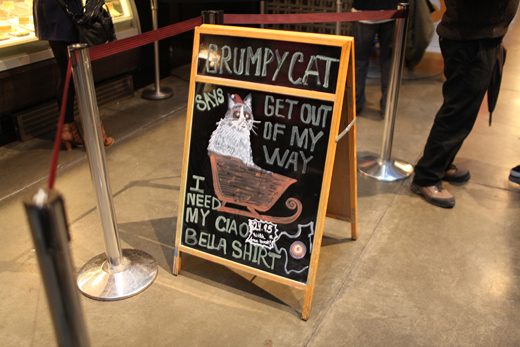 GRUMPY CAT
SAYS
GET OUT
OF MY
WAY
I
NEED
MY CIAO
BELLA SHIRT